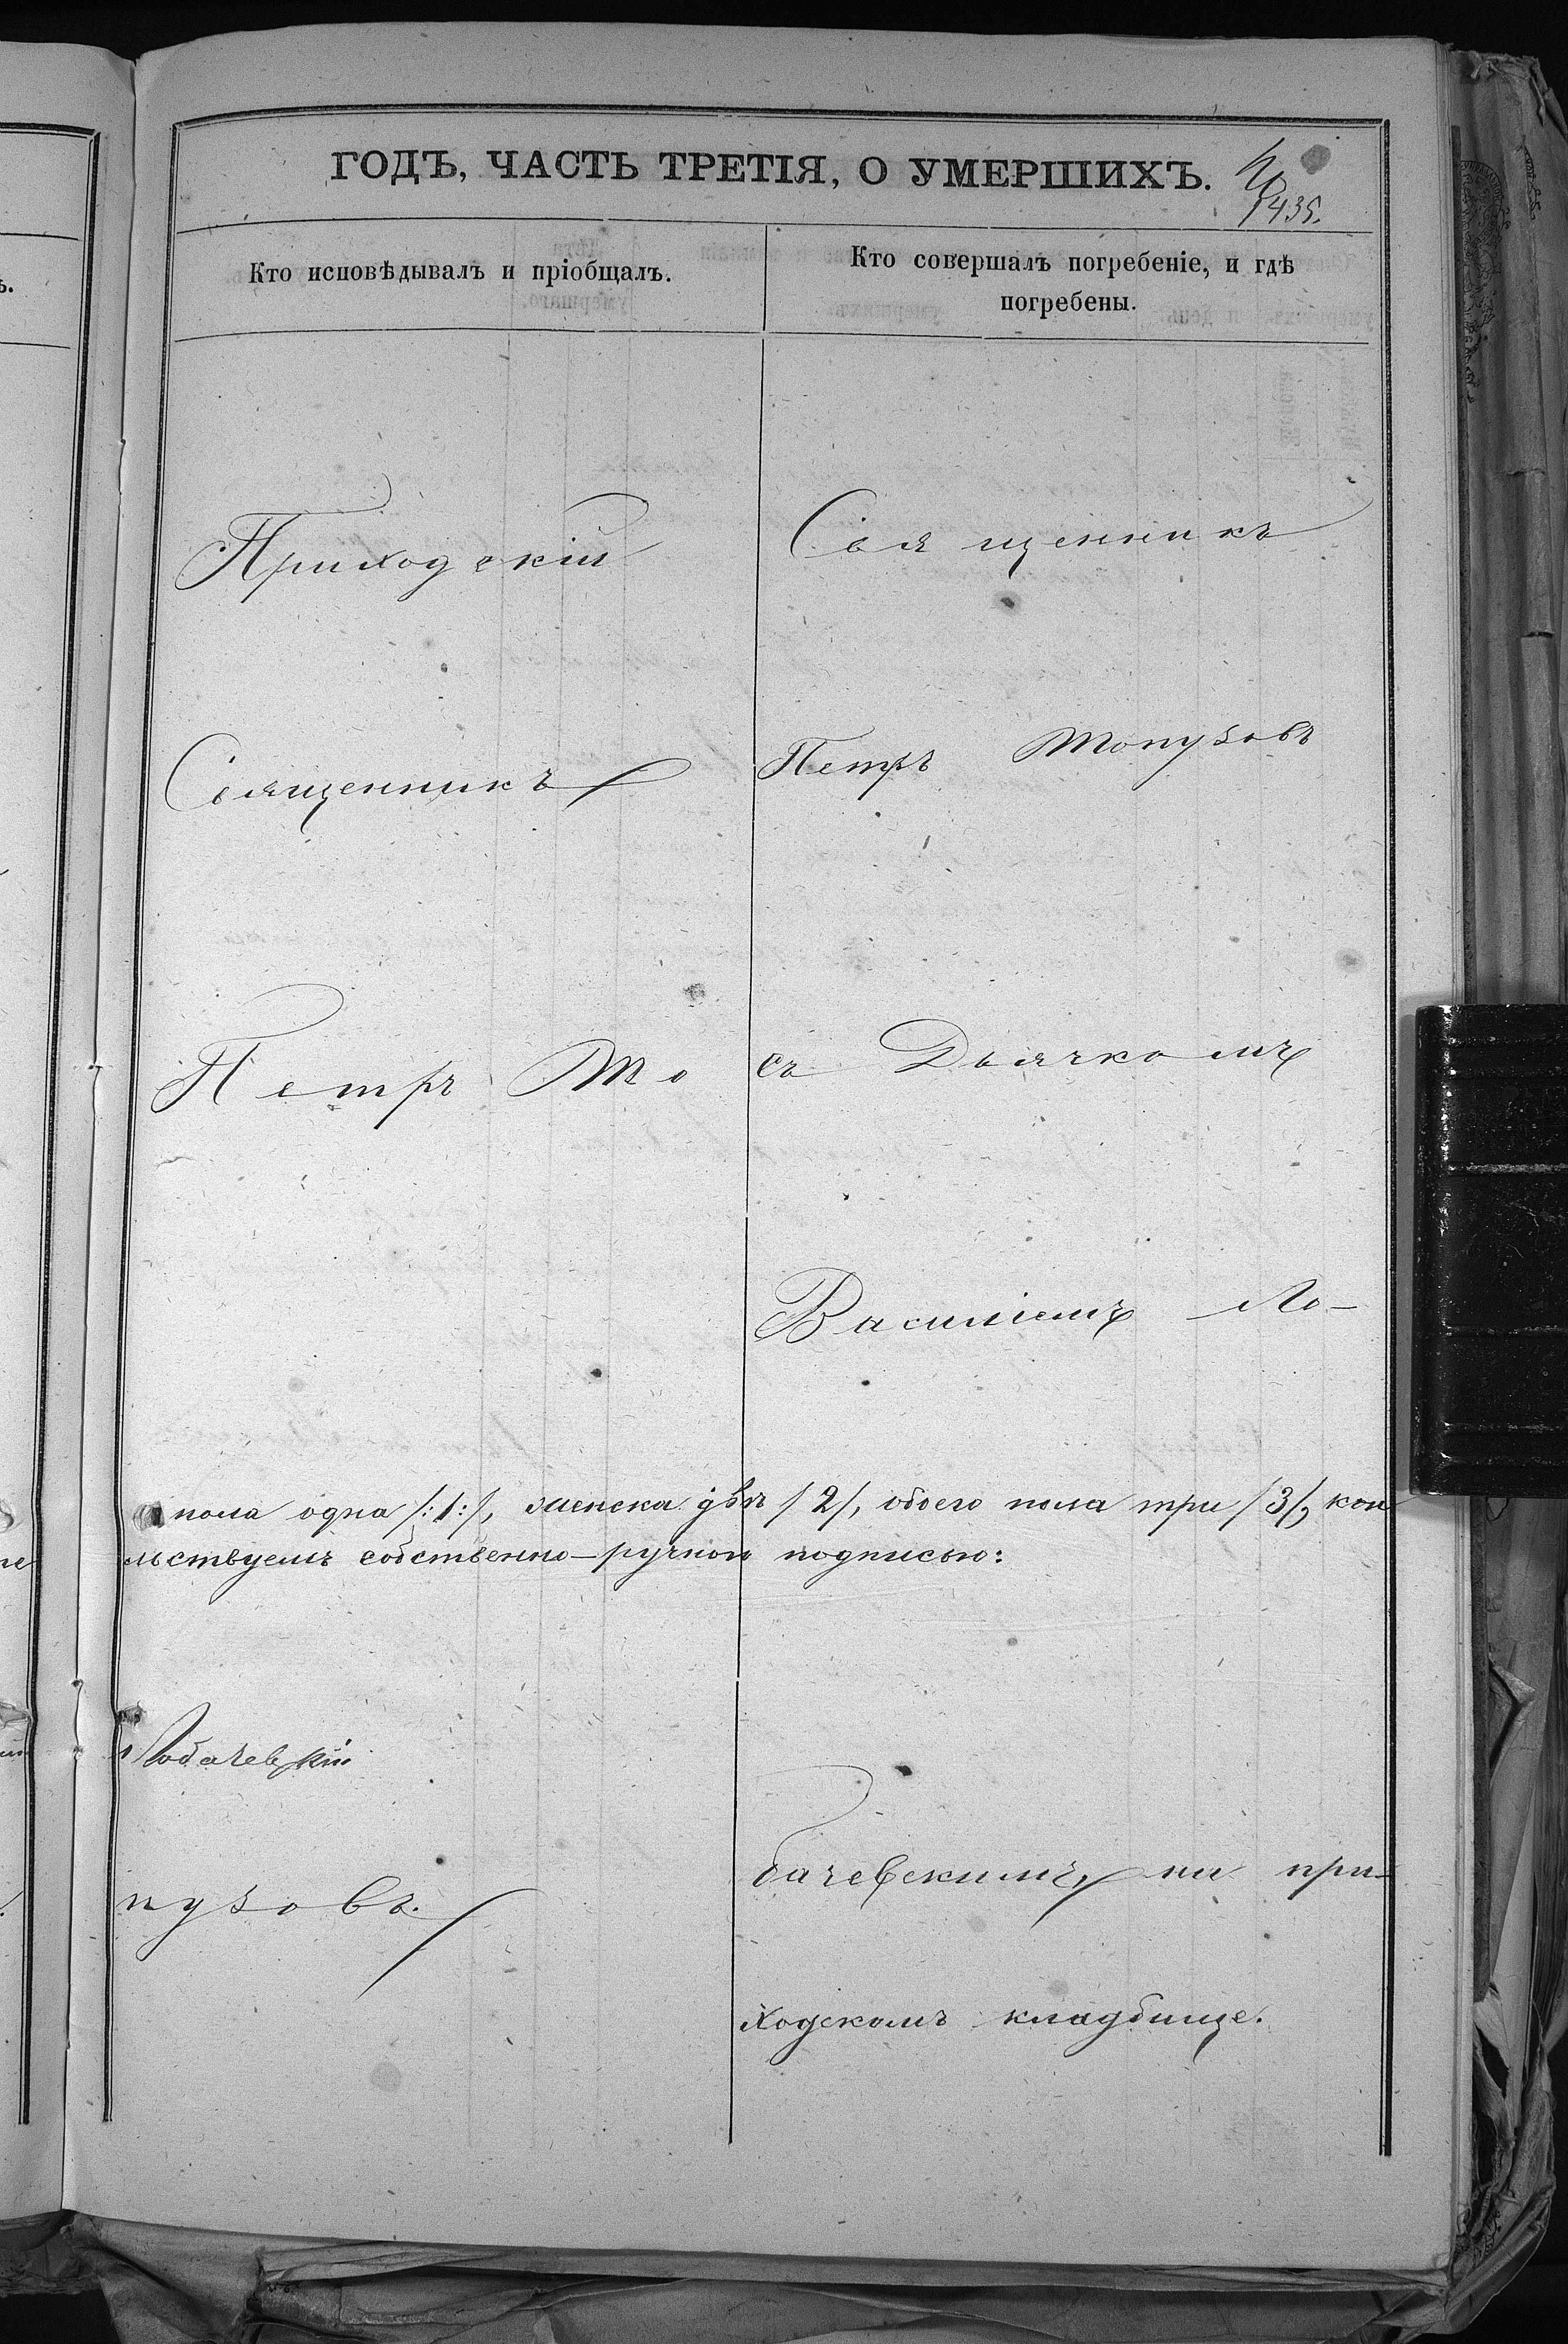 ГОДЪ, ЧАСТЬ ТРЕТІЯ, О УМЕРШИХЪ.
1435.
Кто исповѣдывалъ и пріобщалъ.
Кто совершалъ погребеніе, и гдѣ
погребены.
Приходскій
Священникъ
Петръ То
Священникъ
Петръ Топузовъ
съ Дьячкомъ
Василіемъ Ло-
пола одна /:1:/, женска двѣ /2/, обоего пола три /3/, кои
льствуемъ собственно-ручной подписью:
Лобачевскій
пузовъ.
бачевскимъ, на при-
ходскомъ кладбище.